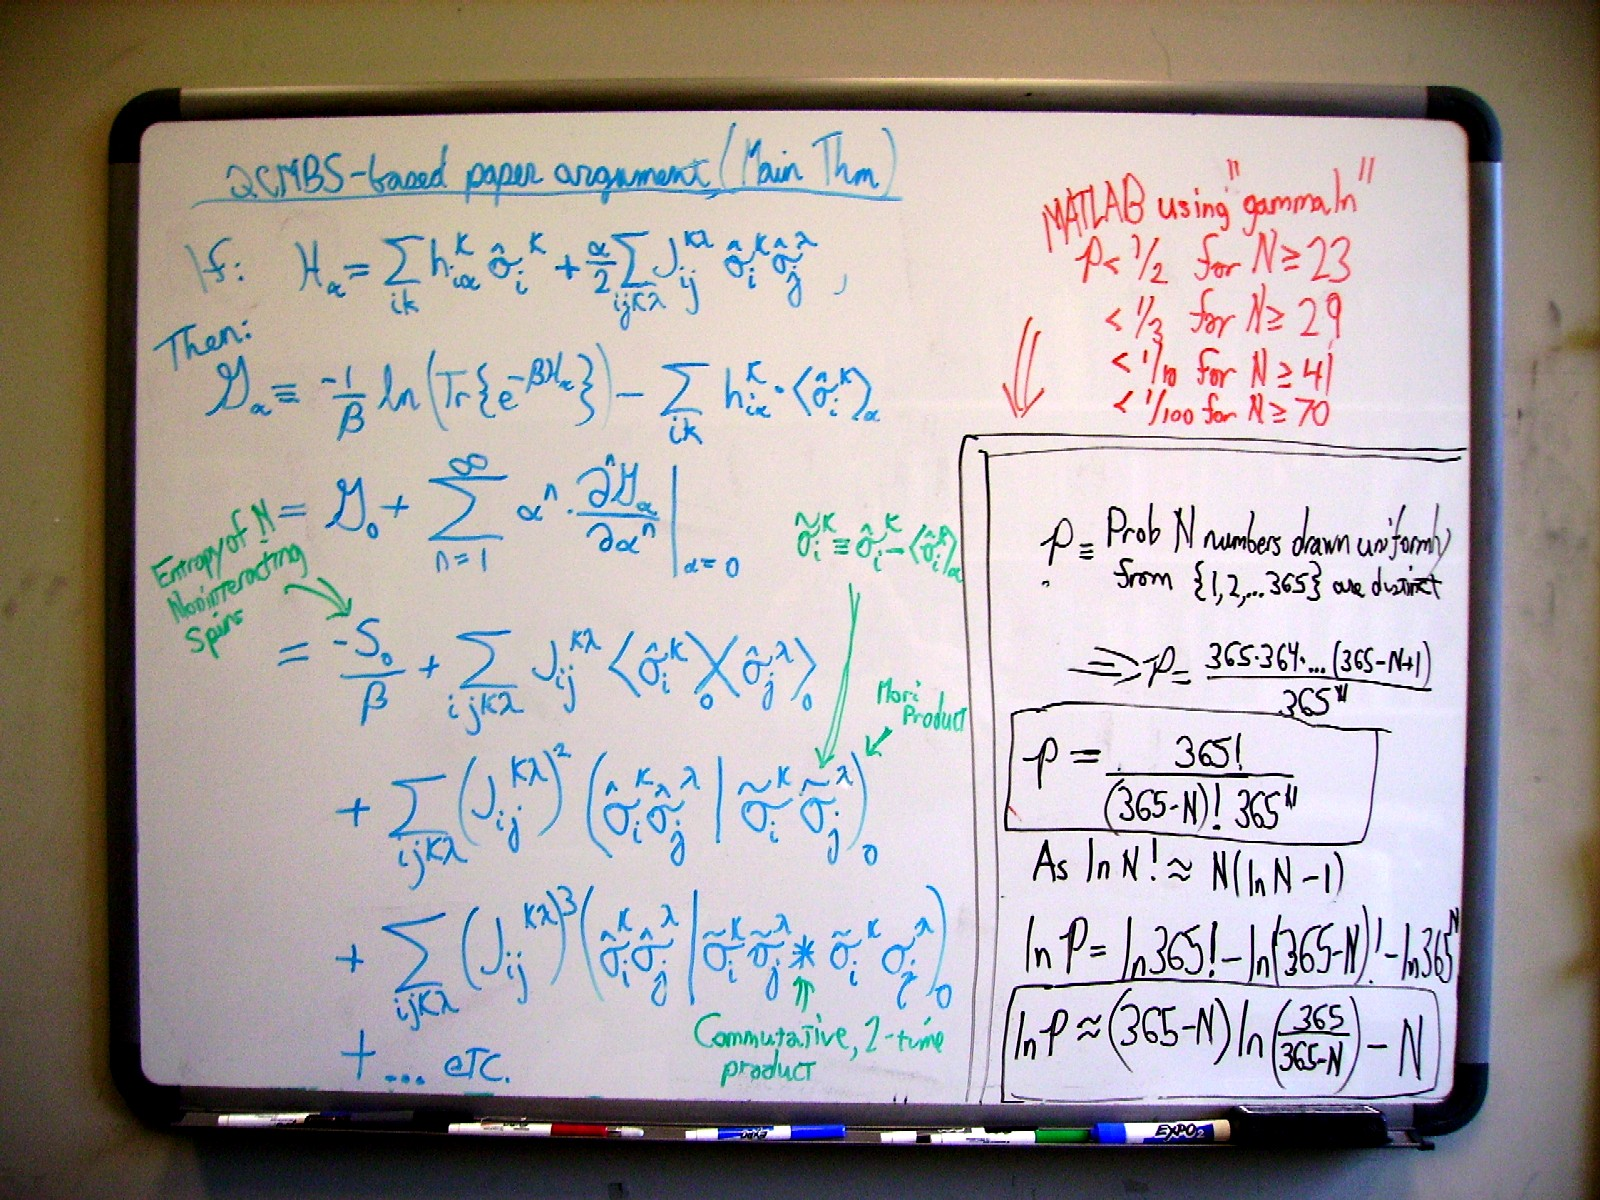 QCMBS-based paper argument (Main Thm)
If: H_α = Σ_{ik} h_{iα}^κ σ̂_i^κ + α/2 Σ_{ijκλ} J_{ij}^{κλ} σ̂_i^κ σ̂_j^λ ,
Then:
G_α ≡ -1/β ln(Tr{e^{-βH_α}}) - Σ_{ik} h_{iα}^κ · ⟨σ̂_i^κ⟩_α
= G_0 + Σ_{n=1}^∞ α^n · ∂^n G_α / ∂α^n |_{α=0}
Entropy of N
Noninteracting
Spins
σ̃_i^κ ≡ σ̂_i^κ - ⟨σ̂_i^κ⟩_α
= -S_0/β + Σ_{ijκλ} J_{ij}^{κλ} ⟨σ̂_i^κ⟩_0 ⟨σ̂_j^λ⟩_0
Mori
Product
+ Σ_{ijκλ} (J_{ij}^{κλ})^2 (σ̂_i^κ σ̂_j^λ | σ̃_i^κ σ̃_j^λ)_0
+ Σ_{ijκλ} (J_{ij}^{κλ})^3 (σ̂_i^κ σ̂_j^λ | σ̃_i^κ σ̃_j^λ * σ̃_i^κ σ_j^λ)_0
Commutative, 2-time
product
+ ... etc.
MATLAB using "gammaln"
p < 1/2 for N ≥ 23
< 1/3 for N ≥ 29
< 1/10 for N ≥ 41
< 1/100 for N ≥ 70
p ≡ Prob N numbers drawn uniformly
from {1,2,...365} are distinct
⇒ p = 365·364·...(365-N+1) / 365^N
p = 365! / (365-N)! 365^N
As ln N! ≈ N(ln N - 1)
ln p = ln 365! - ln(365-N)! - ln 365^N
ln p ≈ (365-N) ln(365/(365-N)) - N
EXPO
EXPO2